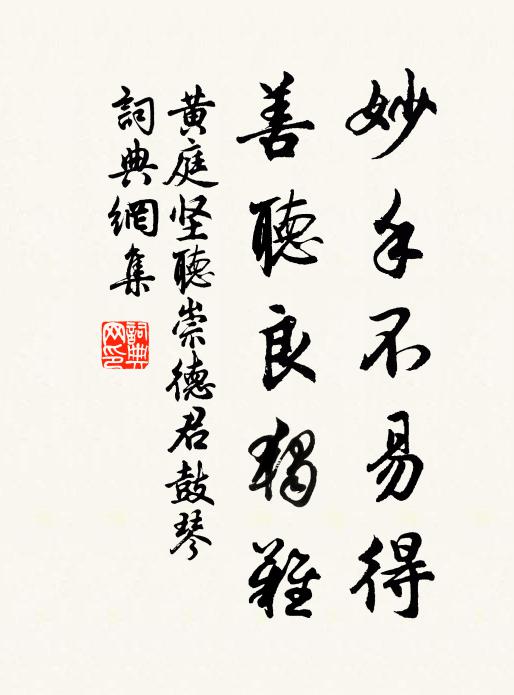 妙手不易得
善聽良獨難
黃庭坚聽崇德君鼓琴
詞典網集
詞典網印